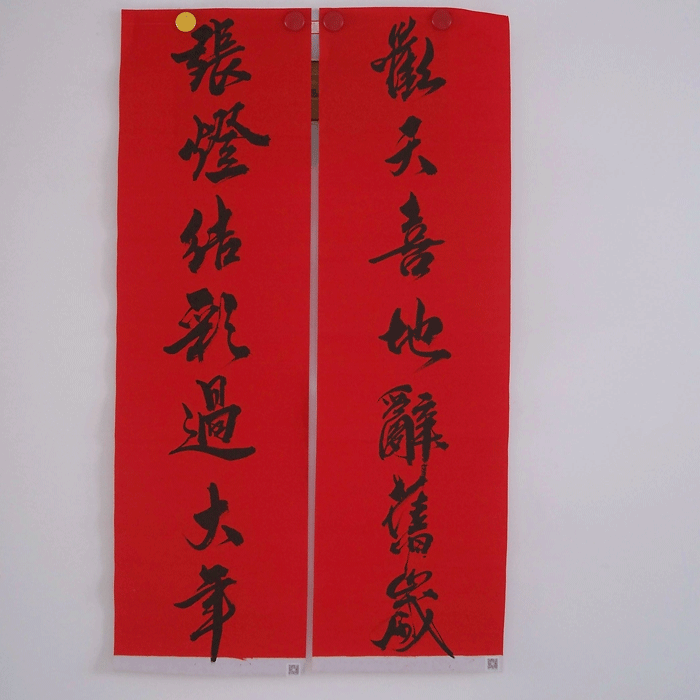 歡天喜地辭舊歲
張燈結彩過大年